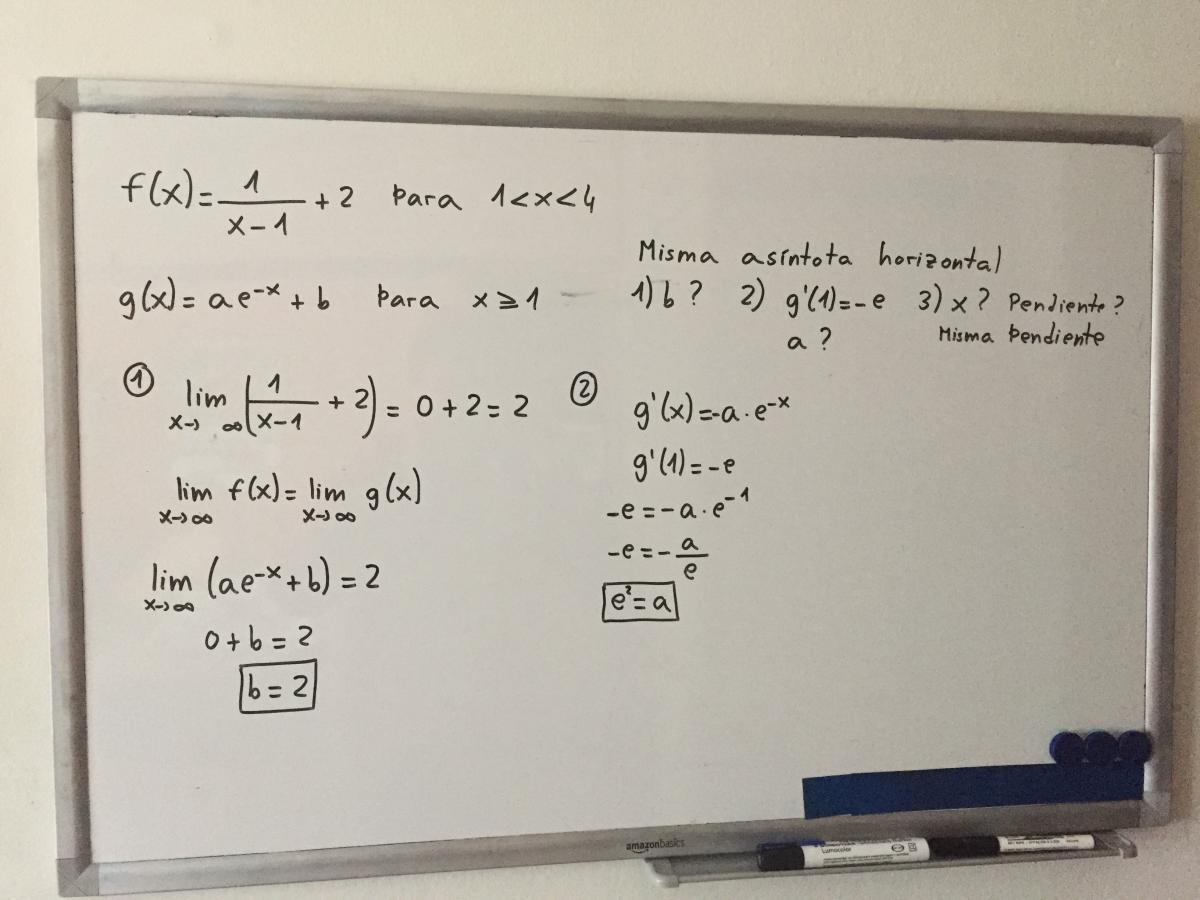 f(x) = 1/(x-1) + 2 para 1 < x < 4
g(x) = a e^{-x} + b para x ≥ 1
Misma asíntota horizontal
1) b ? 2) g'(1) = -e 3) x ? Pendiente ?
a ? Misma pendiente
①
lim x→∞ (1/(x-1) + 2) = 0 + 2 = 2
lim x→∞ f(x) = lim x→∞ g(x)
lim x→∞ (a e^{-x} + b) = 2
0 + b = 2
b = 2
②
g'(x) = -a · e^{-x}
g'(1) = -e
-e = -a · e^{-1}
-e = - a/e
e² = a
amazonbasics
Lumocolor